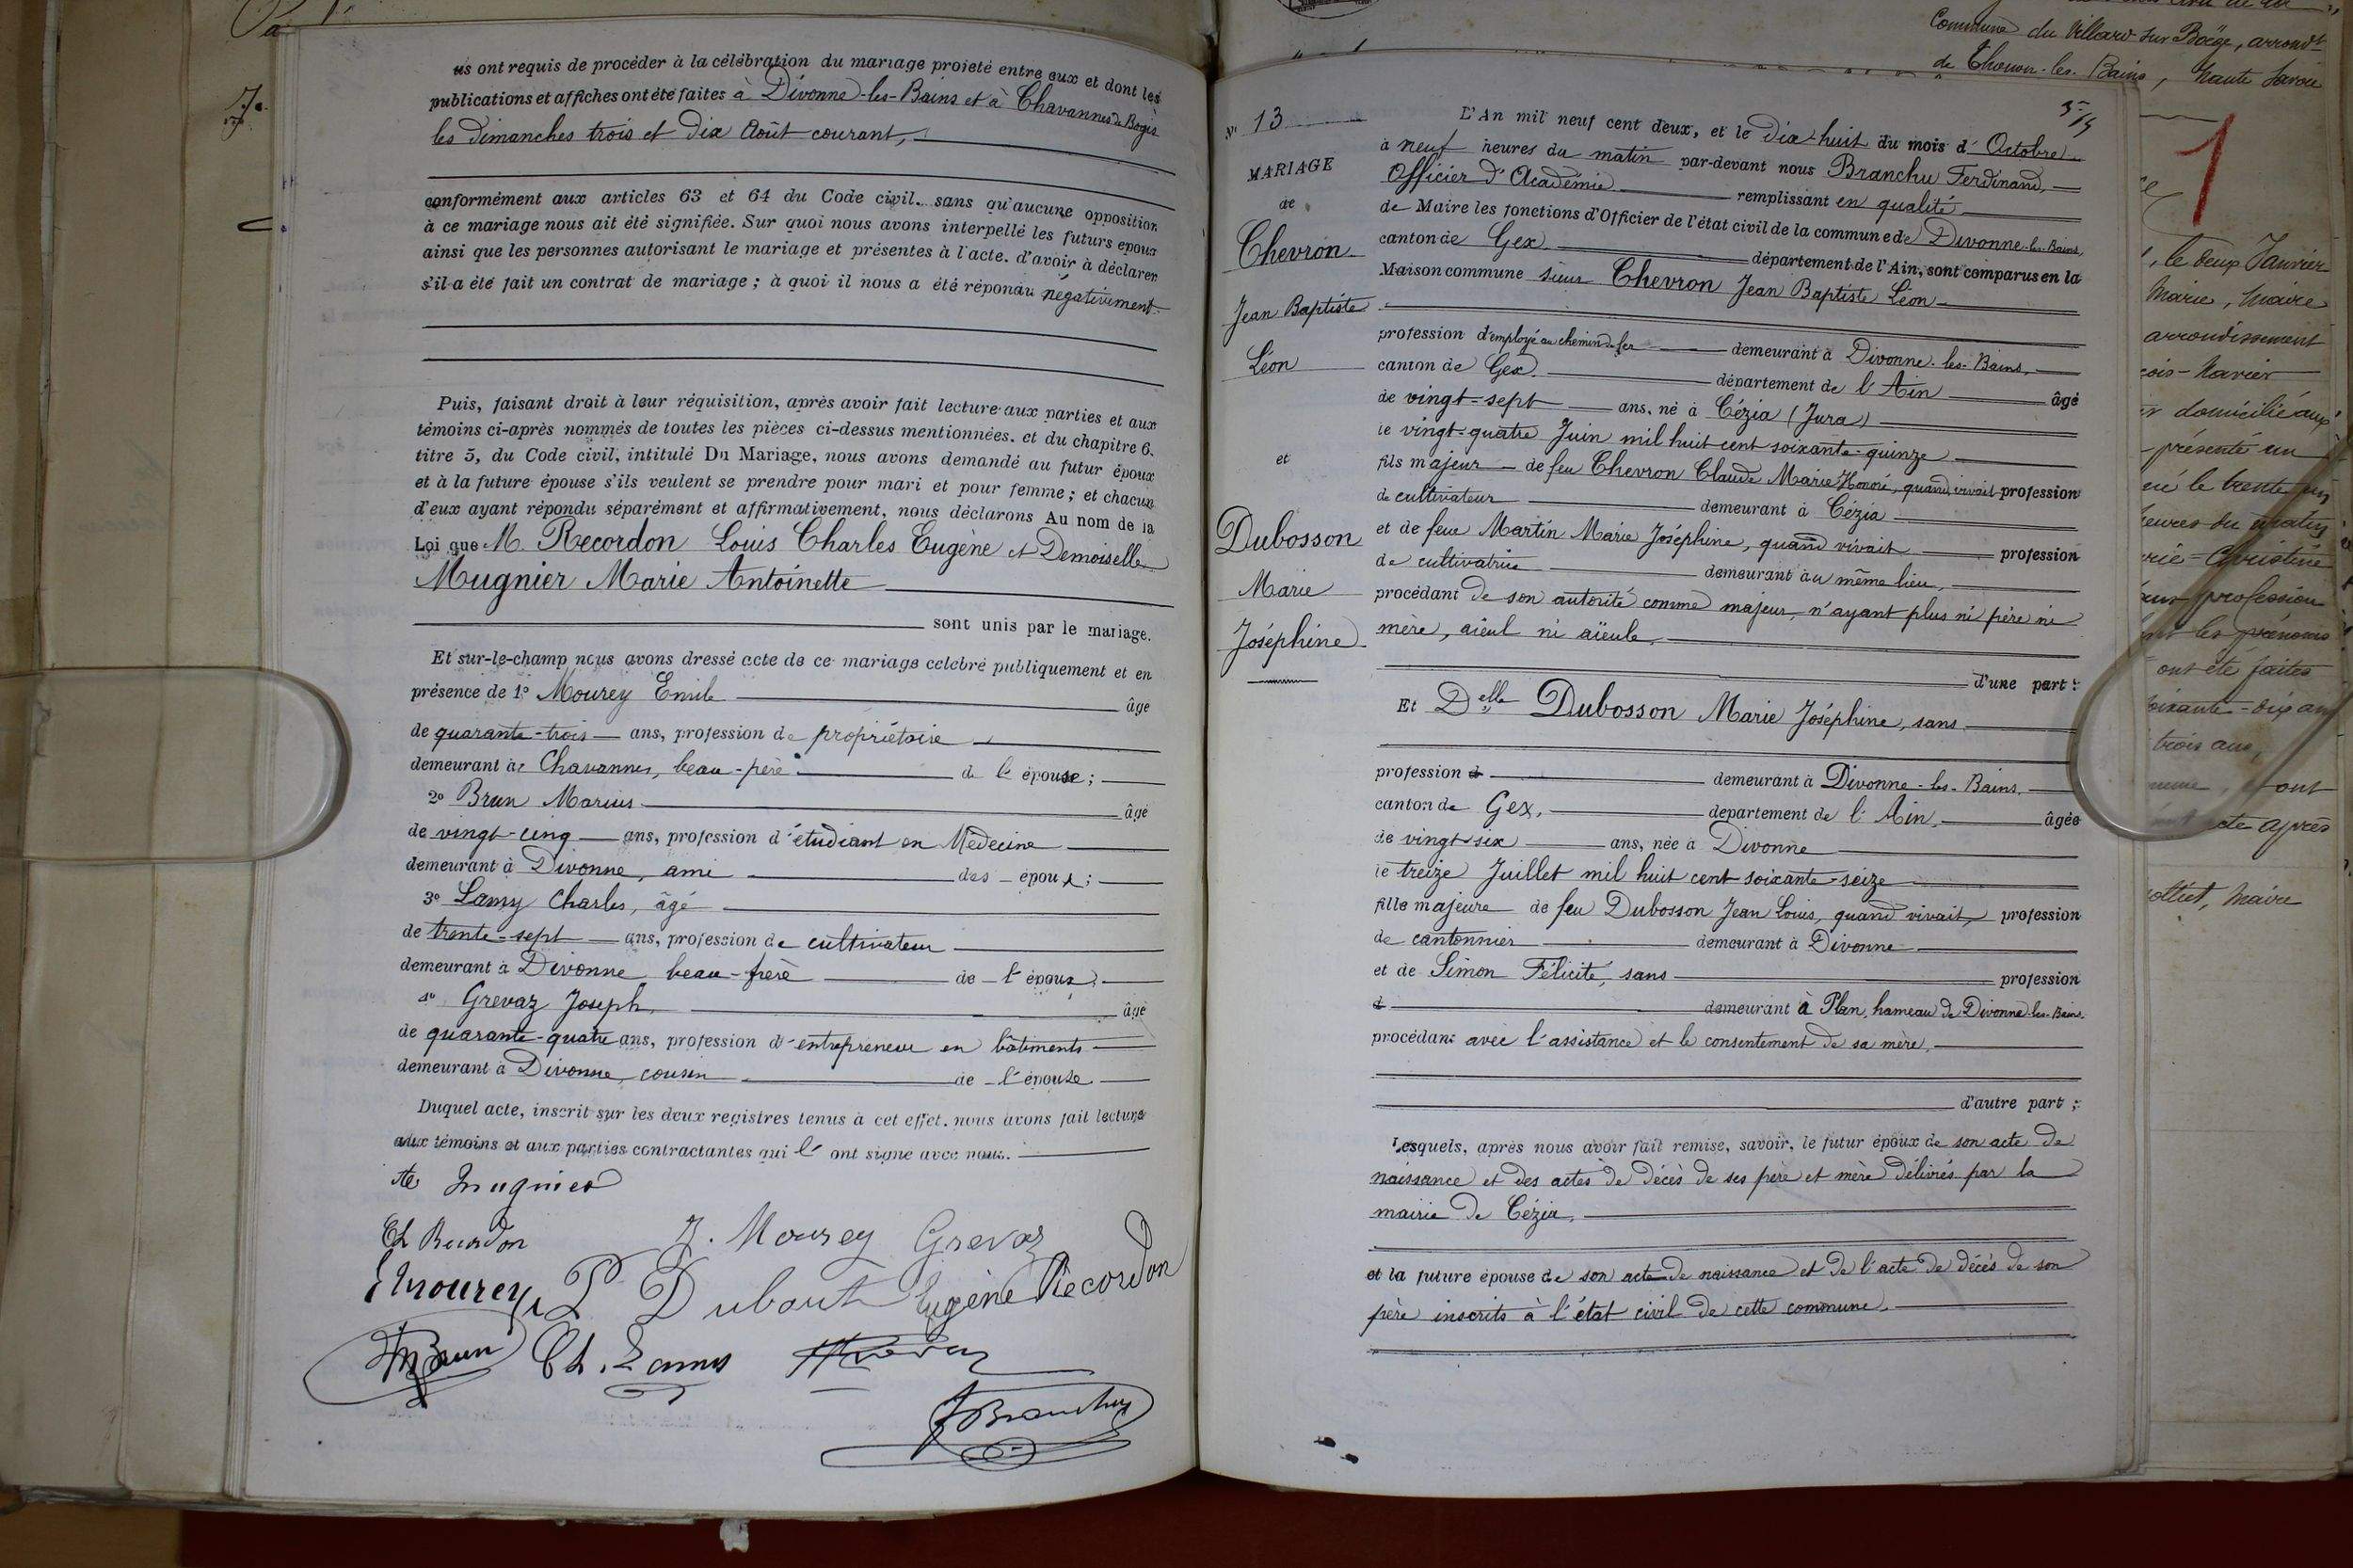 us ont requis de procéder à la célébration du mariage projeté entre eux et dont les
publications et affiches ont été faites à Divonne-les-Bains et à Chavannes de Bogis
les dimanches trois et dix Août courant,
conformément aux articles 63 et 64 du Code civil. sans qu'aucune opposition
à ce mariage nous ait été signifiée. Sur quoi nous avons interpellé les futurs époux
ainsi que les personnes autorisant le mariage et présentes à l'acte. d'avoir à déclarer
s'il a été fait un contrat de mariage ; à quoi il nous a été répondu négativement
Puis, faisant droit à leur réquisition, après avoir fait lecture aux parties et aux
témoins ci-après nommés de toutes les pièces ci-dessus mentionnées. et du chapitre 6.
titre 5, du Code civil, intitulé Du Mariage, nous avons demandé au futur époux
et à la future épouse s'ils veulent se prendre pour mari et pour femme ; et chacun
d'eux ayant répondu séparément et affirmativement, nous déclarons Au nom de la
Loi que M. Recordon Louis Charles Eugène et Demoiselle
Mugnier Marie Antoinette
sont unis par le mariage.
Et sur-le-champ nous avons dressé acte de ce mariage célébré publiquement et en
présence de 1º Mourey Emile âgé
de quarante-trois ans, profession de propriétaire
demeurant à Chavannes, beau-père de l'épouse ;
2º Brun Marius âgé
de vingt-cinq ans, profession d'étudiant en Médecine
demeurant à Divonne, ami des époux ;
3º Lamy Charles, âgé
de trente-sept ans, profession de cultivateur
demeurant à Divonne beau-frère de l'époux
4º Grevaz Joseph, âgé
de quarante-quatre ans, profession d'entrepreneur en bâtiments
demeurant à Divonne, cousin de l'épouse
Duquel acte, inscrit sur les deux registres tenus à cet effet. nous avons fait lecture
aux témoins et aux parties contractantes qui l' ont signé avec nous.
Mugnier
Ch Recordon J. Mourey Grevaz
E Mourey L Dubout Eugène Recordon
M Brun Ch. Lamy
F Branchu
Nº 13
MARIAGE
de
Chevron
Jean Baptiste
Léon
et
Dubosson
Marie
Joséphine
L'An mil neuf cent deux, et le Dix-huit du mois d'Octobre
à neuf heures du matin par-devant nous Branchu Ferdinand,
Officier d'Académie remplissant en qualité
de Maire les fonctions d'Officier de l'état civil de la commune de Divonne-les-Bains,
canton de Gex département de l'Ain, sont comparus en la
Maison commune sieur Chevron Jean Baptiste Léon
profession d'employé au chemin de fer demeurant à Divonne-les-Bains,
canton de Gex. département de l'Ain âgé
de vingt-sept ans, né à Cézia (Jura)
le vingt-quatre Juin mil huit cent soixante-quinze
fils majeur de feu Chevron Claude Marie Honoré, quand vivait profession
de cultivateur demeurant à Cézia
et de feue Martin Marie Joséphine, quand vivait profession
de cultivatrice demeurant au même lieu,
procédant de son autorité comme majeur, n'ayant plus ni père ni
mère, aïeul ni aïeule,
d'une part :
Et Delle Dubosson Marie Joséphine, sans
profession d demeurant à Divonne-les-Bains.
canton de Gex, département de l'Ain, âgée
de vingt-six ans, née à Divonne
le treize Juillet mil huit cent soixante-seize
fille majeure de feu Dubosson Jean Louis, quand vivait, profession
de cantonnier demeurant à Divonne
et de Simon Félicité, sans profession
d demeurant à Plan, hameau de Divonne-les-Bains.
procédant avec l'assistance et le consentement de sa mère,
d'autre part ;
Lesquels, après nous avoir fait remise, savoir, le futur époux de son acte de
naissance et des actes de décès de ses père et mère délivrés par la
mairie de Cézia,
et la future épouse de son acte de naissance et de l'acte de décès de son
père inscrits à l'état civil de cette commune.
Commune du Villard sur Boëge, arrondt
de Thonon-les-Bains, haute Savoie
1
le deux Janvier
Marie, Maire
arrondissement
domicilié
présenté un
né le trente
heures du matin
Christine
profession
les prénoms
ont été faites
trois ans,
ont
acte après
Maire